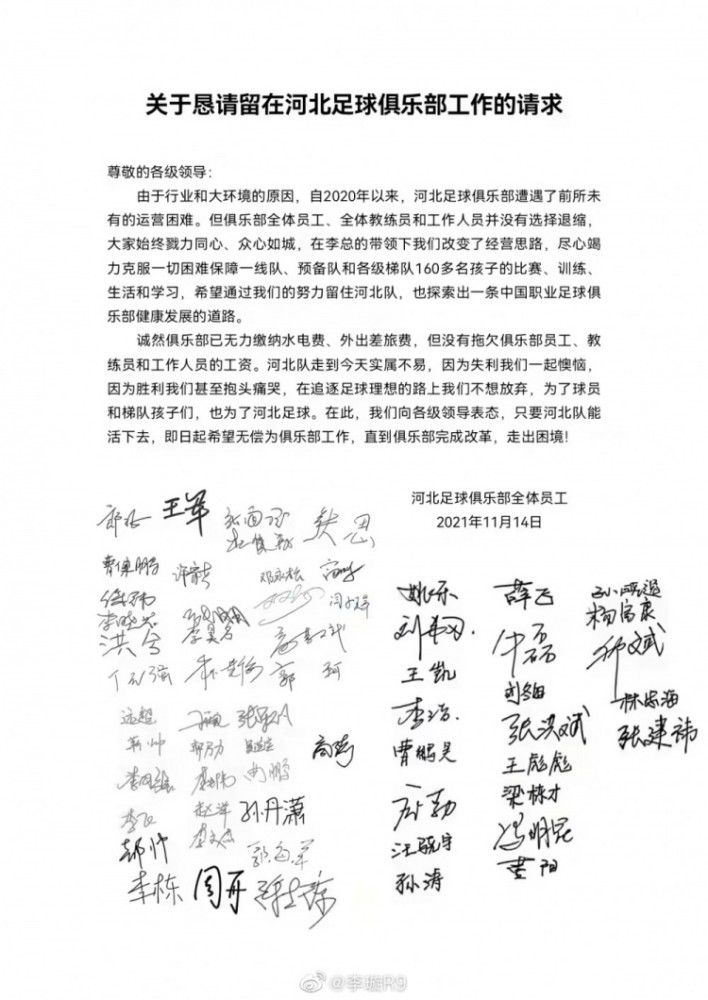 关于恳请留在河北足球俱乐部工作的请求
尊敬的各级领导：
由于行业和大环境的原因，自2020年以来，河北足球俱乐部遭遇了前所未
有的运营困难。但俱乐部全体员工、全体教练员和工作人员并没有选择退缩，
大家始终戮力同心、众心如城，在李总的带领下我们改变了经营思路，尽心竭
力克服一切困难保障一线队、预备队和各级梯队160多名孩子的比赛、训练、
生活和学习，希望通过我们的努力留住河北队，也探索出一条中国职业足球俱
乐部健康发展的道路。
诚然俱乐部已无力缴纳水电费、外出差旅费，但没有拖欠俱乐部员工、教
练员和工作人员的工资。河北队走到今天实属不易，因为失利我们一起懊恼，
因为胜利我们甚至抱头痛哭，在追逐足球理想的路上我们不想放弃，为了球员
和梯队孩子们，也为了河北足球。在此，我们向各级领导表态，只要河北队能
活下去，即日起希望无偿为俱乐部工作，直到俱乐部完成改革，走出困境！
河北足球俱乐部全体员工
2021年11月14日
王军
洪兮
郭 珂
孙丹潇
李栋 周开
姚乐
王凯
李浩
曹鹏昊
孙涛
薛飞
牛磊
张洪斌
王彪彪
梁栋才
冯明昆
黄阳
杨富康
林忠海
张建祎
@李璇R9